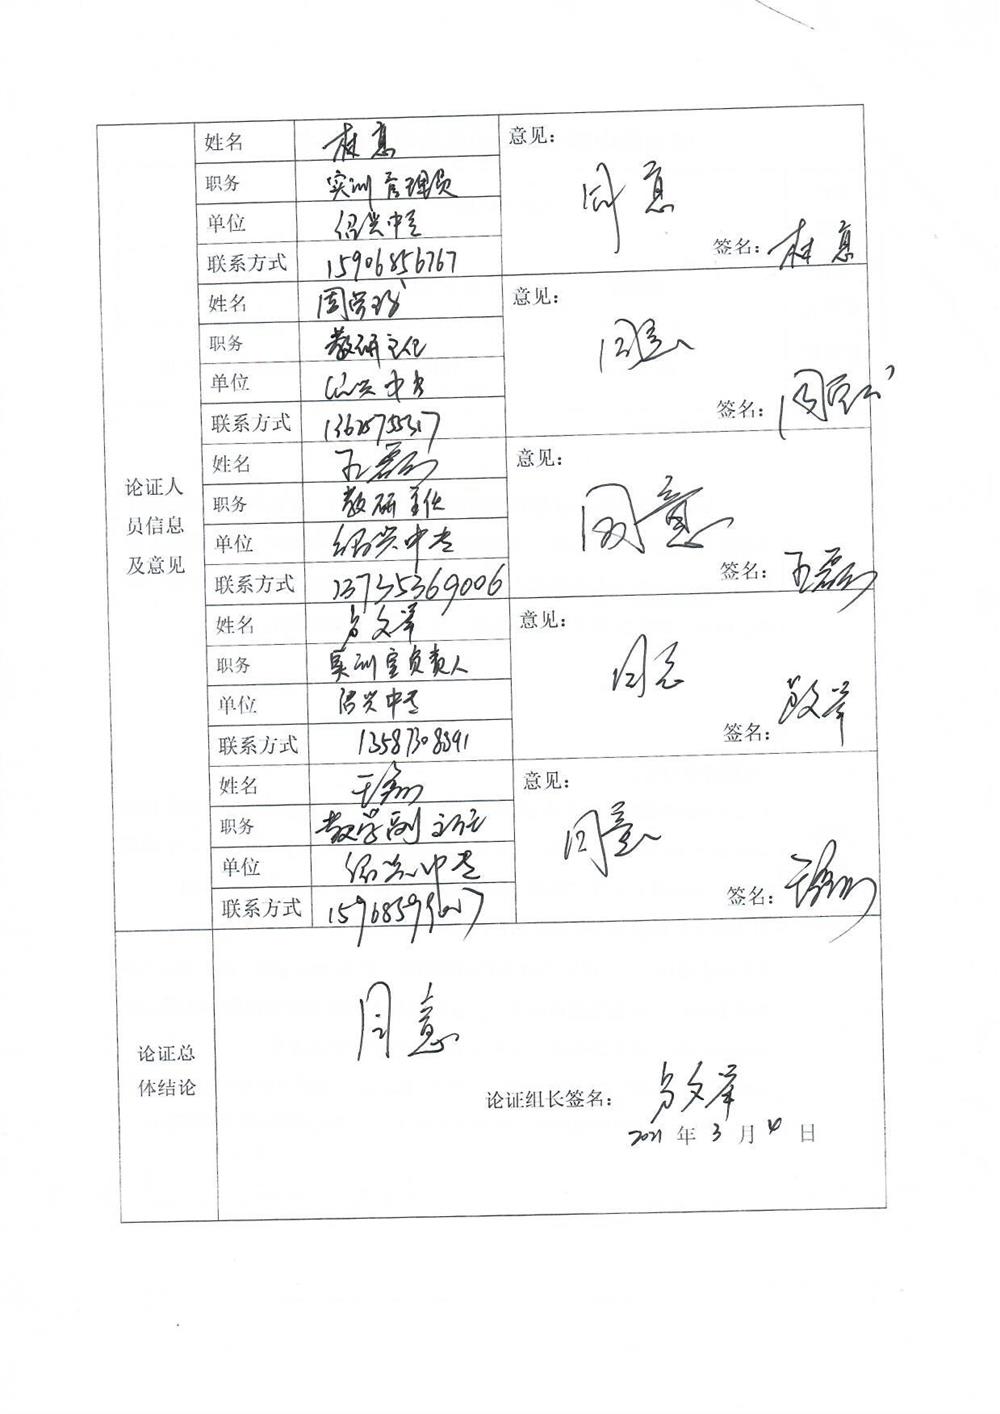 论证人
员信息
及意见
姓名 林惠
职务 实训管理员
单位 绍兴中专
联系方式 15906856767
意见：
同意
签名：林惠
姓名
职务 教研主任
单位 绍兴中专
联系方式
意见：
同意
签名：
姓名 王磊
职务 教研主任
单位 绍兴中专
联系方式 13735369006
意见：
同意
签名：王磊
姓名
职务 实训室负责人
单位 绍兴中专
联系方式 13587308391
意见：
同意
签名：
姓名
职务 教学副主任
单位 绍兴中专
联系方式
意见：
同意
签名：
论证总
体结论
同意
论证组长签名：
2021 年 3 月 4 日